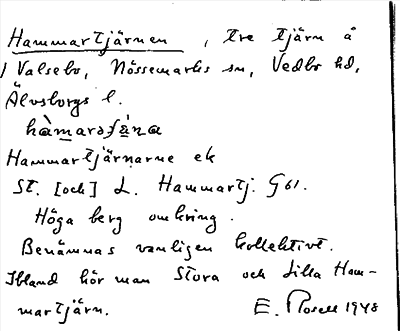 Hammartjärnen, tre tjärn å
/ Valsebo, Nössemarks sn, Vedbo hd,
Älvsborgs l.
Hammartjärnarne ek
St. [och] L. Hammartj. G 61.
Höga berg omkring.
Benämnas vanligen kollektivt.
Ibland hör man Stora och Lilla Ham-
martjärn. E. Rosell 1948